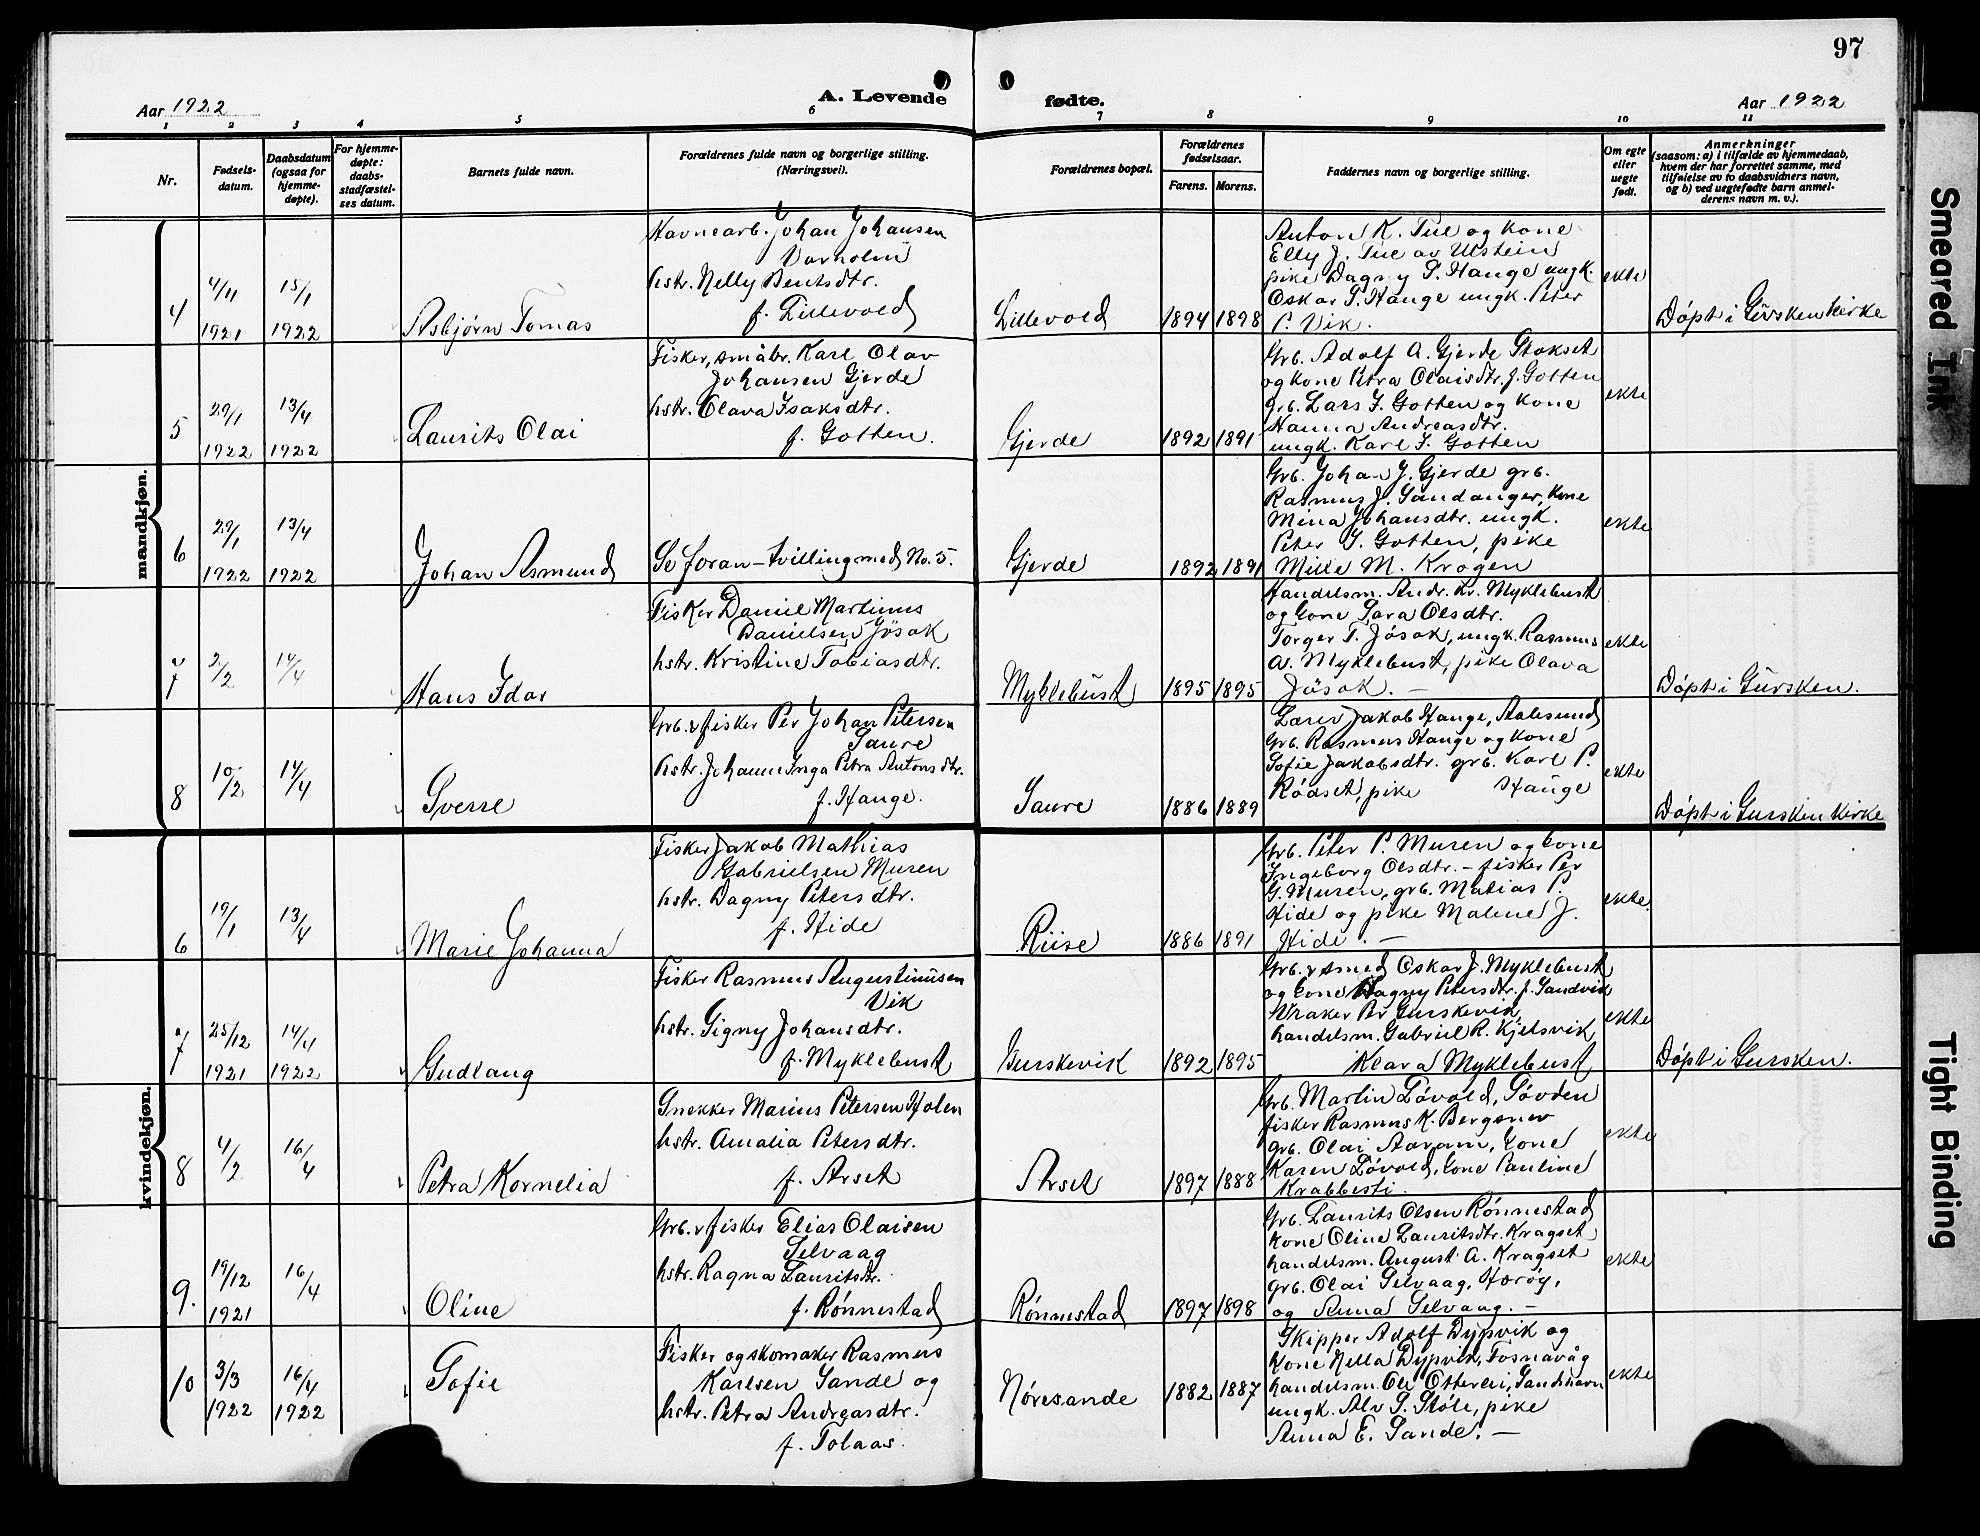 97
Aar 1922
A. Levende
fødte.
Aar 1922
1 2 3 4 5 6 7 8 9 10 11
Nr.
Fødsels-
datum.
Daabsdatum
(ogsaa for
hjemme-
døpte).
For hjemme-
døpte:
daabs-
stadfæstel-
ses datum.
Barnets fulde navn.
Forældrenes fulde navn og borgerlige stilling.
(Næringsvei).
Forældrenes bopæl.
Forældrenes
fødselsaar.
Farens. Morens.
Faddernes navn og borgerlige stilling.
Om egte
eller
uegte
født.
Anmerkninger
(saasom: a) i tilfælde av hjemmedaab,
hvem der har forrettet samme, med
tilføielse av to daabsvidners navn,
og b) ved uegtefødte barn anmel-
derens navn m. v.).
mandkjøn.
4
4/11
1921
15/1
1922
Asbjørn Tomas
Havnearb. Johan Johansen
Varholm
hstr. Nelly Bentsdtr.
f. Lillevold
Lillevold
1894 1898
Anton K. Tue og kone
Elly J. Tue av Ulstein
pike Dagny P. Hauge ungk.
Oskar P. Hauge ungk. Peter
P. Vik.
ekte
Døpt i Gursken kirke
5
29/1
1922
13/4
1922
Laurits Olai
Fisker, småbr. Karl Olav
Johansen Gjerde
hstr. Olava Isaksdtr.
f. Gotten.
Gjerde
1892 1891
Grb. Adolf A. Gjerde Stokset
og kone Petra Olaisdtr. f. Gotten
grb. Lars I. Gotten og kone
Hanna Andreasdtr.
ungk. Karl I. Gotten
ekte
6
29/1
1922
13/4
1922
Johan Asmund
Se foran - tvilling med No. 5.
Gjerde
1892 1891
Grb. Johan J. Gjerde grb.
Rasmus J. Sandanger, kone
Mina Johansdtr. ungk.
Peter I. Gotten, pike
Mille M. Krogen
ekte
7
2/2
14/4
Hans Idar
Fisker Daniel Martinus
Danielsen Jøsok
hstr. Kristine Tobiasdtr.
Myklebust
1895 1895
Handelsm. Andr. Kr. Myklebust
og kone Sara Olsdtr.
Torger T. Jøsok, ungk. Rasmus
A. Myklebust, pike Olava
Jøsok. -
ekte
Døpt i Gursken.
8
10/2
14/4
Sverre
Grb. & fisker Per Johan Petersen
Saure
hstr. Johanne Inga Petra Antonsdtr.
f. Hauge.
Saure
1886 1889
Lærer Jakob Hauge, Aalesund
Grb. Rasmus Hauge og kone
Sofie Jakobsdtr. grb. Karl P.
Rødset, pike Hauge
ekte
Døpt i Gursken kirke
kvindekjøn.
6
19/1
13/4
Marie Johanna
Fisker Jakob Mathias
Gabrielsen Muren
hstr. Dagny Petersdtr.
f. Hide
Riise
1886 1891
Grb. Peter P. Muren og kone
Ingeborg Olsdtr. - fisker Per
G. Muren, grb. Matias P.
Hide og pike Malene J.
Hide. -
ekte.
7
25/12
1921
14/4
1922
Gudlaug
Fisker Rasmus Augustinusen
Vik
hstr. Signy Johansdtr.
f. Myklebust
Gurskevik
1892 1895
Grb. & smed Oskar J. Myklebust
og kone Dagny Petersdtr. f. Sandvik
Vraker Per Gurskevik,
handelsm. Gabriel R. Kjelsvik
Klara Myklebust
ekte
Døpt i Gursken.
8
4/2
16/4
Petra Kornelia
Snekker Marius Petersen Holen
hstr. Amalia Petersdtr.
f. Arset
Arset
1897 1888
Grb. Martin Løvold, Søvden
fisker Rasmus K. Bergsnev
grb. Olai Aaram, kone
Karen Løvold, kone Pauline
Krabbesti.
ekte
9.
19/12
1921
16/4
Oline
Grb. & fisker Elias Olaisen
Selvaag
hstr. Ragna Lauritsdtr.
f. Rønnestad
Rønnestad
1897 1898
Grb. Laurits Olsen Rønnestad
kone Oline Lauritsdtr. Kragset
handelsm. August A. Kragset
grb. Olai Selvaag, Harøy,
og Anna Selvaag. -
ekte
10
3/3
1922
16/4
1922
Sofie
Fisker og skomaker Rasmus
Karlsen Sande og
hstr. Petra Andreasdtr.
f. Tolaas.
Nøresande
1882 1887
Skipper Adolf Dypvik og
kone Nella Dypvik, Fosnavåg
handelsm. Ole Otterlei, Sandshavn
ungk. Alv S. Støle, pike
Anna E. Sande. -
ekte
Smeared Ink
Tight Binding